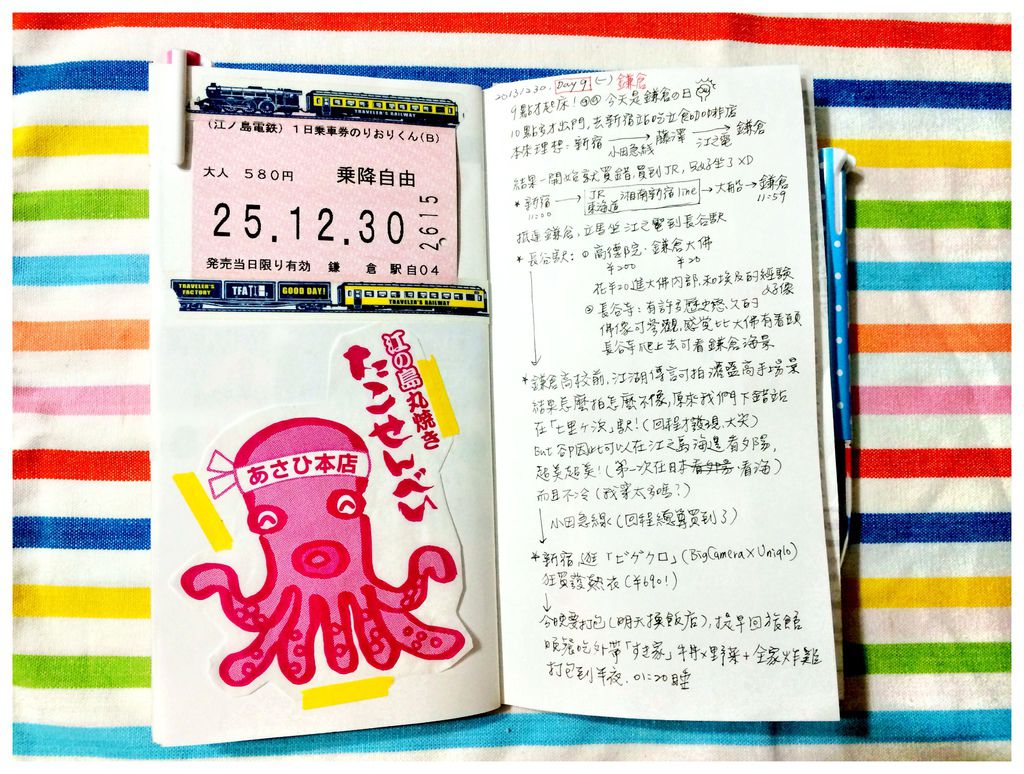 TRAVELER'S RAILWAY
(江ノ島電鉄) 1日乗車券のりおりくん(B)
大人 580円 乗降自由
25.12.30
2615
発売当日限り有効 鎌倉駅自04
TRAVELER'S FACTORY TFA GOOD DAY! TRAVELER'S RAILWAY
江の島丸焼き
たこせんべい
あさひ本店
20131230. Day 9 (一) 鎌倉
9點才起床! 今天是鎌倉の日
10點多才出門,去新宿站吃立食咖啡店
本來理想:新宿 → 藤澤 → 鎌倉
小田急線 江之電
結果一開始就買錯,買到JR,只好坐了XD
*新宿 → JR 湘南新宿line → 大船 → 鎌倉
11:00 東海道 11:59
抵達鎌倉,立馬坐江之電到長谷駅
*長谷駅:①高德院·鎌倉大佛
¥200 ¥20
花¥20進大佛內部,和埃及的經驗
好像
②長谷寺:有許多歷史悠久的
佛像可參觀,感覺比大佛有看頭
長谷寺爬上去可看鎌倉海景
*鎌倉高校前,江湖傳言可拍灌籃高手場景
結果怎麼拍怎麼不像,原來我們下錯站
在「七里ヶ浜」駅!(回程才發現,大笑)
But 卻因此可以在江之島海邊看夕陽,
超美超美!(第一次在日本看海)
而且不冷(我穿太多嗎?)
小田急線(回程總算買到了)
*新宿,逛「ビックロ」(BigCamera×Uniqlo)
狂買發熱衣(¥690!)
今晚要打包(明天換飯店),提早回旅館
晚餐吃外帶「すき家」牛丼×野菜+全家炸雞
打包到半夜.01:20睡